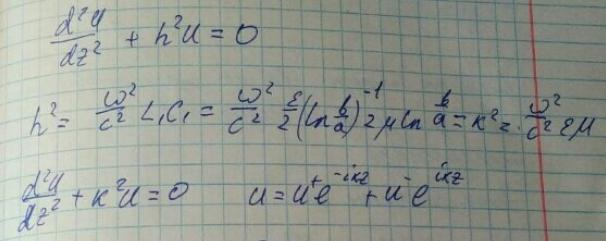 d²U/dz² + h²U = 0
h² = ω²/c² L₁C₁ = ω²/c² ε/2 (ln b/a)⁻¹ 2μ ln b/a = κ² = ω²/c² εμ
d²U/dz² + κ²U = 0 U = U⁺e^(-iκz) + U⁻e^(iκz)